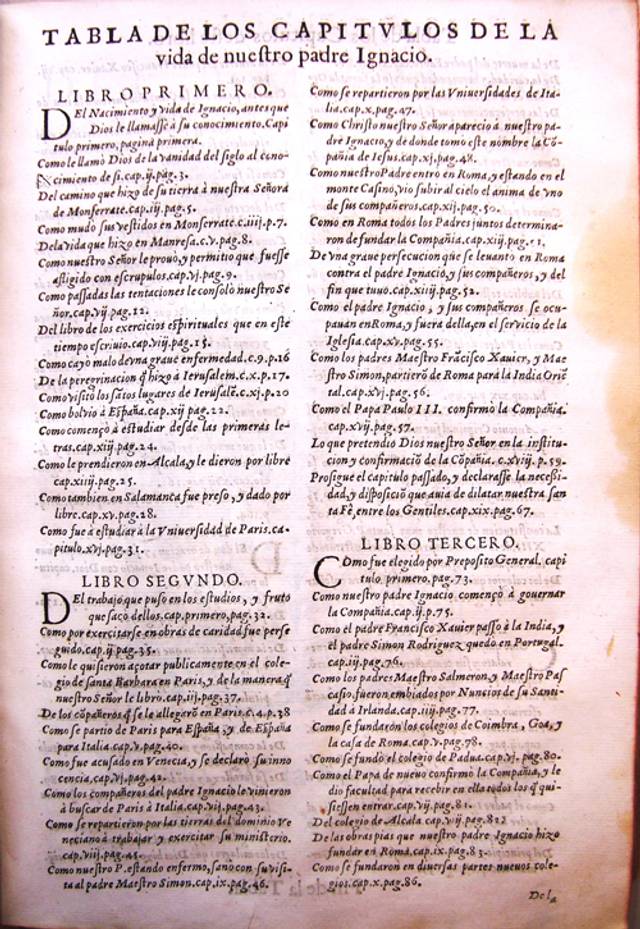 TABLA DE LOS CAPITVLOS DE LA
vida de nuestro padre Ignacio.
LIBRO PRIMERO.
DEl Nacimiento y vida de Ignacio, antes que
Dios le llamasse à su conocimiento. Capi
tulo primero, pagina primera.
Como le llamò Dios de la vanidad del siglo al cono-
cimiento de si. cap. ij. pag. 3.
Del camino que hizo de su tierra à nuestra Señora
de Monserrate. cap. iij. pag. 5.
Como mudò sus vestidos en Monserrate. c. iiij. p. 7.
De la vida que hizo en Manresa. c. v. pag. 8.
Como nuestro Señor le prouò, y permitio que fuesse
afligido con escrupulos. cap. vj. pag. 9.
Como passadas las tentaciones le consolò nuestro Se
ñor. cap. vij. pag. 12.
Del libro de los exercicios espirituales que en este
tiempo escriuio. cap. viij. pag. 15.
Como cayò malo de vna graue enfermedad. c. 9. p. 16
De la peregrinacion q̃ hizo à Ierusalem. c. x. p. 17.
Como visitò los sãtos lugares de Ierusalẽ. c. xj. p. 20
Como boluio à España. cap. xij. pag. 22.
Como començò à estudiar desde las primeras le-
tras. cap. xiij. pag. 24.
Como le prendieron en Alcala, y le dieron por libre
cap. xiiij. pag. 25.
Como tambien en Salamanca fue preso, y dado por
libre. cap. xv. pag. 28.
Como fue à estudiar à la Vniuersidad de Paris. ca-
pitulo. xvj. pag. 31.
LIBRO SEGVNDO.
DEl trabajo que puso en los estudios, y fruto
que sacò dellos. cap. primero, pag. 32.
Como por exercitarse en obras de caridad fue perse
guido. cap. ij. pag. 35.
Como le quisieron açotar publicamente en el cole-
gio de santa Barbara en Paris, y de la manera q̃
nuestro Señor le libro. cap. iij. pag. 37.
De los cõpañeros q̃ se le allegarõ en Paris. c. 4. p. 38
Como se partio de Paris para España, y de España
para Italia. cap. v. pag. 40.
Como fue acusado en Venecia, y se declarò su inno
cencia. cap. vj. pag. 42.
Como los compañeros del padre Ignacio le vinieron
à buscar de Paris à Italia. cap. vij. pag. 43.
Como se repartieron por las tierras del dominio Ve
neciano à trabajar y exercitar su ministerio.
cap. viij. pag. 45.
Como nuestro P. estando enfermo, sanò con su visi-
ta al padre Maestro Simon. cap. ix. pag. 46.
Como se repartieron por las Vniuersidades de Ita-
lia. cap. x. pag. 47.
Como Christo nuestro Señor apareciò à nuestro pa-
dre Ignacio, y de donde tomò este nombre la Cõ-
pañia de Iesus. cap. xj. pag. 48.
Como nuestro Padre entro en Roma, y estando en el
monte Casino, vio subir al cielo el anima de vno
de sus compañeros. cap. xij. pag. 50.
Como en Roma todos los Padres juntos determina-
ron de fundar la Compañia. cap. xiij. pag. 51.
De vna graue persecucion que se leuanto en Roma
contra el padre Ignacio, y sus compañeros, y del
fin que tuuo. cap. xiiij. pag. 52.
Como el padre Ignacio, y sus compañeros se ocu-
pauan en Roma, y fuera della, en el seruicio de la
Iglesia. cap. xv. pag. 55.
Como los padres Maestro Frãcisco Xauier, y Mae
stro Simon, partierõ de Roma para la India Oriẽ
tal. cap. xvj. pag. 56.
Como el Papa Paulo III. confirmò la Compañia.
cap. xvij. pag. 57.
Lo que pretendio Dios nuestro Señor en la institu-
cion y confirmaciõ de la Cõpañia. c. xviij. p. 59.
Prosigue el capitulo passado, y declarasse la necesi-
dad, y disposiciò que auia de dilatar nuestra san
ta Fè, entre los Gentiles. cap. xix. pag. 67.
LIBRO TERCERO.
COmo fue elegido por Preposito General. capi
tulo primero, pag. 73.
Como nuestro padre Ignacio començò à gouernar
la Compañia. cap. ij. p. 75.
Como el padre Francisco Xauier passò à la India, y
el padre Simon Rodriguez quedo en Portugal.
cap. iij. pag. 76.
Como los padres Maestro Salmeron, y Maestro Pas
casio, fueron embiados por Nuncios de su Santi-
dad à Irlanda. cap. iiij. pag. 77.
Como se fundaron los colegios de Coimbra, Goa, y
la casa de Roma. cap. v. pag. 78.
Como se fundò el colegio de Padua. cap. vj. pag. 80.
Como el Papa de nueuo confirmò la Compañia, y le
dio facultad para recebir en ella todos los q̃ qui-
siessen entrar. cap. vij. pag. 81.
Del colegio de Alcala. cap. viij. pag. 82.
De las obras pias que nuestro padre Ignacio hizo
fundar en Roma. cap. ix. pag. 83.
Como se fundaron en diuersas partes nueuos cole-
gios. cap. x. pag. 86.
Dela